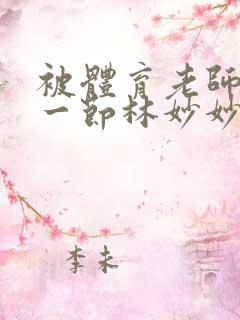 被體育老師
一節林妙妙
李未